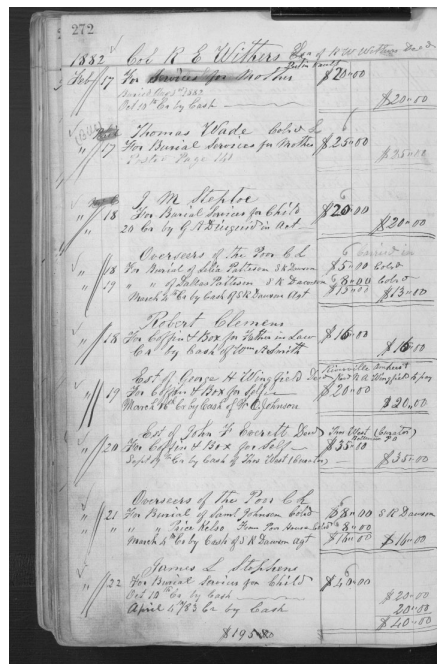 272
1882 Col R E Withers
Feby 17 For Services for Mother $20=00
Buried Aug 5th 1882
Oct 10th Cr by Cash $20=00
Thomas Wade Cold
" 17 For Burial Services for Mother $25=00
Posted Page 161 $25=00
J M Steptoe
" 18 For Burial Services for Child $20=00
20 Cr by in Act $20=00
Overseers of the Poor C L
" 18 For Burial of Patterson S R Dawson $5=00 Cold
" 19 " " of Dallas Patterson S R Dawson $8=00 Cold
March 4th Cr by Cash of S R Dawson Agt $13=00 $13=00
Robert Clemens
" 18 For Coffin & Box for Father in Law $16=00
Cr by Cash of Smith $16=00
Est. of George H Wingfield Decd
" 19 For Coffin & Box for $20=00
March 16th Cr by Cash of Johnson $20=00
Est of John F Everett Decd Thos West (Curator)
" 20 For Coffin & Box for Self $35=00
Sept Cr by Cash of Thos West (Curator) $35=00
Overseers of the Poor C L
" 21 For Burial of Saml Johnson Cold $8=00 S R Dawson
" " " Price Kelso From Poor House Cold $8=00
March 4th Cr by Cash of S R Dawson Agt $16=00 $16=00
James L Stephens
" 22 For Burial Services for Child $40=00
Oct 10th Cr by Cash $20=00
April 4th/83 Cr by Cash 20=00
$40=00